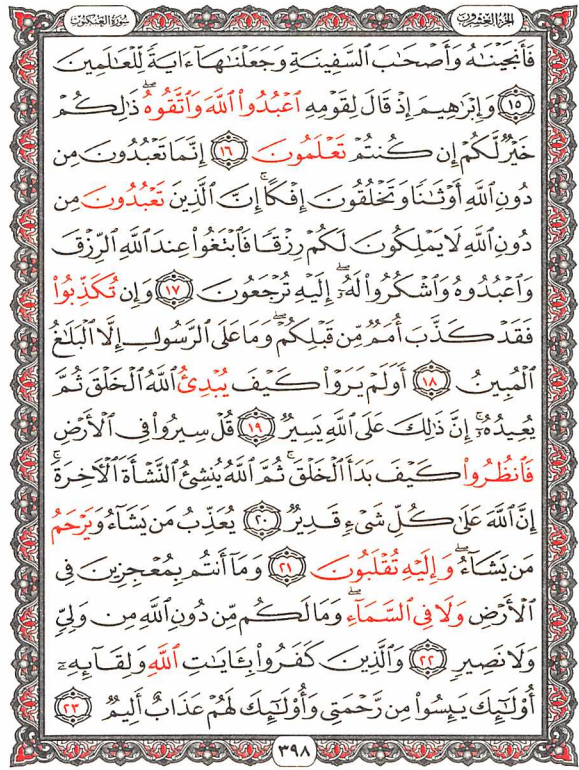 الجزء العشرون
سورة العنكبوت
فَأَنجَيْنَٰهُ وَأَصْحَٰبَ ٱلسَّفِينَةِ وَجَعَلْنَٰهَآ ءَايَةً لِّلْعَٰلَمِينَ
١٥ وَإِبْرَٰهِيمَ إِذْ قَالَ لِقَوْمِهِ ٱعْبُدُوا۟ ٱللَّهَ وَٱتَّقُوهُ ۖ ذَٰلِكُمْ
خَيْرٌ لَّكُمْ إِن كُنتُمْ تَعْلَمُونَ ١٦ إِنَّمَا تَعْبُدُونَ مِن
دُونِ ٱللَّهِ أَوْثَٰنًا وَتَخْلُقُونَ إِفْكًا ۚ إِنَّ ٱلَّذِينَ تَعْبُدُونَ مِن
دُونِ ٱللَّهِ لَا يَمْلِكُونَ لَكُمْ رِزْقًا فَٱبْتَغُوا۟ عِندَ ٱللَّهِ ٱلرِّزْقَ
وَٱعْبُدُوهُ وَٱشْكُرُوا۟ لَهُۥٓ ۖ إِلَيْهِ تُرْجَعُونَ ١٧ وَإِن تُكَذِّبُوا۟
فَقَدْ كَذَّبَ أُمَمٌ مِّن قَبْلِكُمْ ۖ وَمَا عَلَى ٱلرَّسُولِ إِلَّا ٱلْبَلَٰغُ
ٱلْمُبِينُ ١٨ أَوَلَمْ يَرَوْا۟ كَيْفَ يُبْدِئُ ٱللَّهُ ٱلْخَلْقَ ثُمَّ
يُعِيدُهُۥٓ ۚ إِنَّ ذَٰلِكَ عَلَى ٱللَّهِ يَسِيرٌ ١٩ قُلْ سِيرُوا۟ فِى ٱلْأَرْضِ
فَٱنظُرُوا۟ كَيْفَ بَدَأَ ٱلْخَلْقَ ۚ ثُمَّ ٱللَّهُ يُنشِئُ ٱلنَّشْأَةَ ٱلْءَاخِرَةَ ۚ
إِنَّ ٱللَّهَ عَلَىٰ كُلِّ شَىْءٍ قَدِيرٌ ٢٠ يُعَذِّبُ مَن يَشَآءُ وَيَرْحَمُ
مَن يَشَآءُ ۖ وَإِلَيْهِ تُقْلَبُونَ ٢١ وَمَآ أَنتُم بِمُعْجِزِينَ فِى
ٱلْأَرْضِ وَلَا فِى ٱلسَّمَآءِ ۖ وَمَا لَكُم مِّن دُونِ ٱللَّهِ مِن وَلِىٍّ
وَلَا نَصِيرٍ ٢٢ وَٱلَّذِينَ كَفَرُوا۟ بِـَٔايَٰتِ ٱللَّهِ وَلِقَآئِهِۦٓ
أُو۟لَٰٓئِكَ يَئِسُوا۟ مِن رَّحْمَتِى وَأُو۟لَٰٓئِكَ لَهُمْ عَذَابٌ أَلِيمٌ ٢٣
٣٩٨